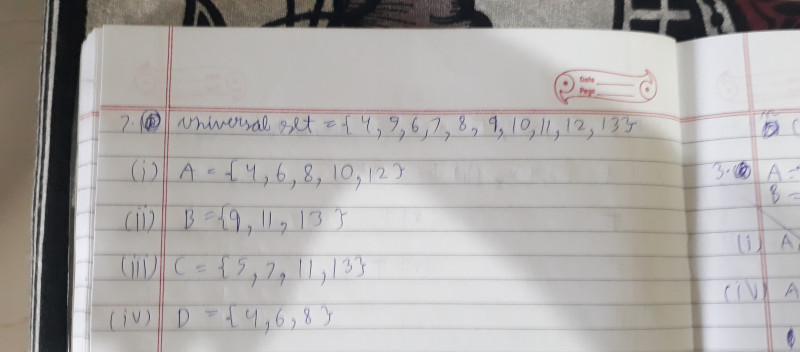 Date
Page
7. universal set = {4, 5, 6, 7, 8, 9, 10, 11, 12, 13}
(i) A = {4, 6, 8, 10, 12}
(ii) B = {9, 11, 13}
(iii) C = {5, 7, 11, 13}
(iv) D = {4, 6, 8}
3. A =
B =
(i) A
(iv) A